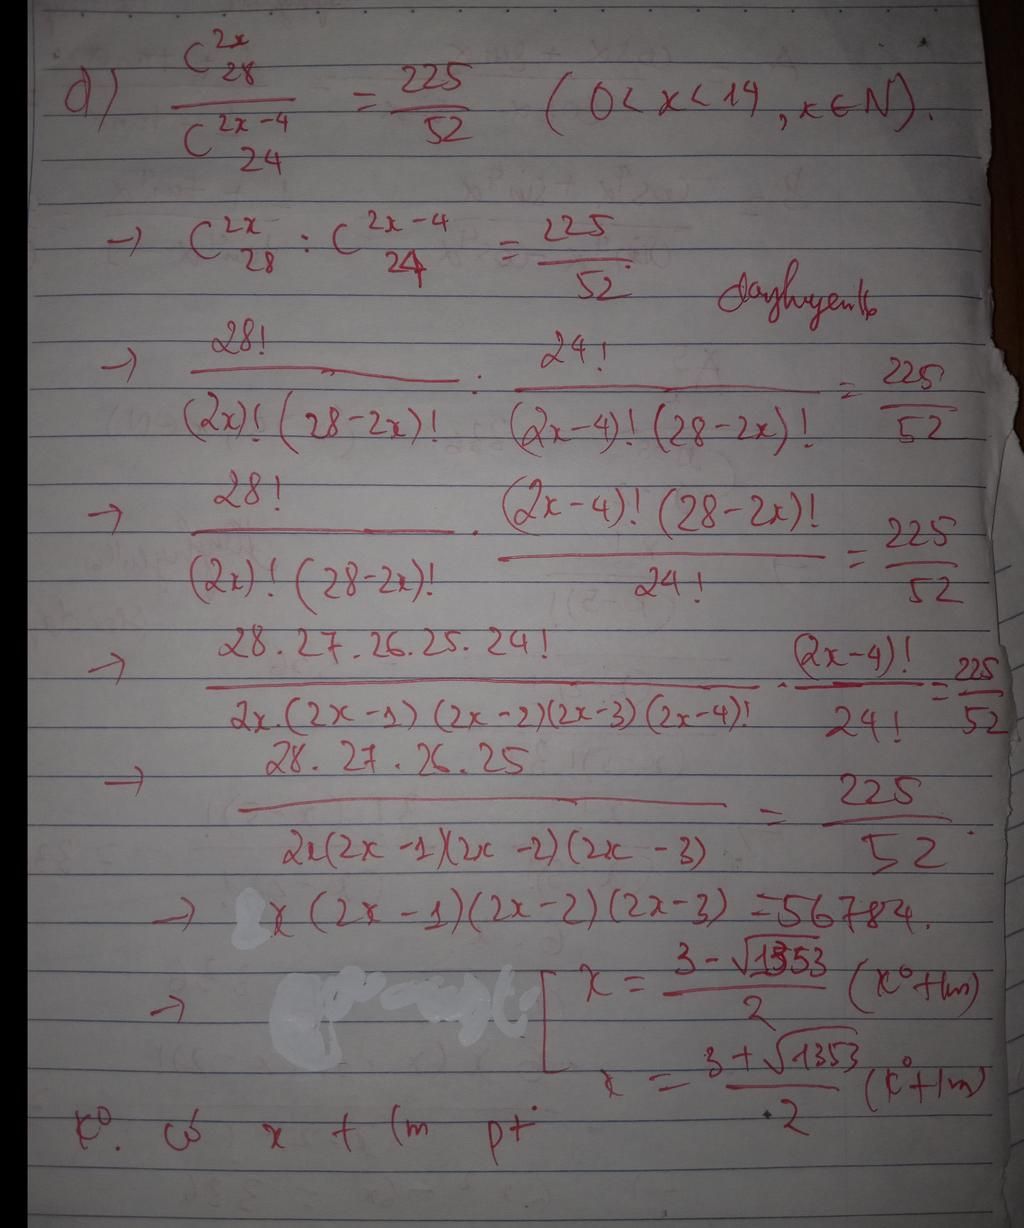 d) C^{2x}_{28} / C^{2x-4}_{24} = 225/52 (0 < x < 14, x ∈ N).
→ C^{2x}_{28} : C^{2x-4}_{24} = 225/52
→ 28! / (2x)! (28-2x)! : 24! / (2x-4)! (28-2x)! = 225/52
→ 28! / (2x)! (28-2x)! . (2x-4)! (28-2x)! / 24! = 225/52
→ 28.27.26.25.24! / 2x.(2x-1)(2x-2)(2x-3)(2x-4)! . (2x-4)! / 24! = 225/52
→ 28.27.26.25 / 2x(2x-1)(2x-2)(2x-3) = 225/52
→ x(2x-1)(2x-2)(2x-3) = 56784.
→ [ x = 3-√1353 / 2 (K° t/m)
x = 3+√1353 / 2 (K° t/m)
K°. có x t/m pt